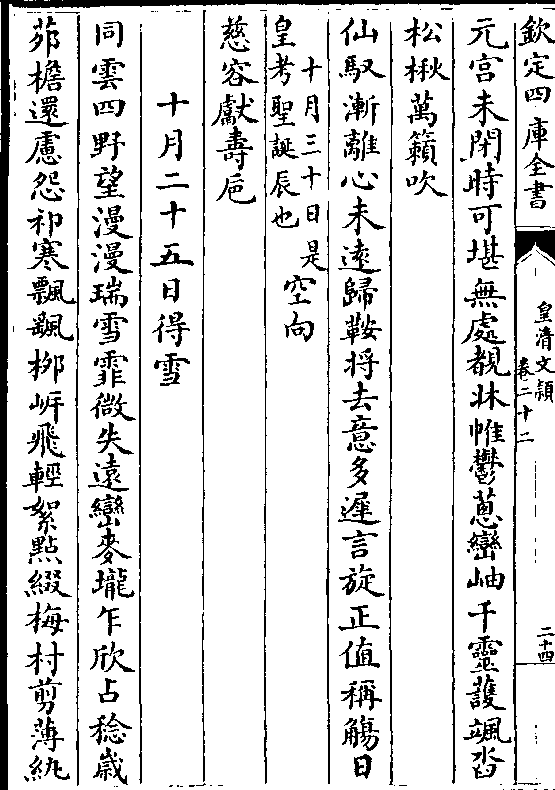 欽定四庫全書
皇清文頴
卷二十二
二十四
元宫未閉時可堪無處覩牀帷鬱蔥巒岫千靈䕶颯沓
松楸萬籟吹
仙馭漸離心未遠歸鞍将去意多遲言旋正值稱觴日
十月三十日是
皇考聖誕辰也
空向
慈容獻壽巵
十月二十五日得雪
同雲四野望漫漫瑞雪霏微失遠巒麥壠乍欣占稔嵗
茆檐還慮怨祁寒飄颻栁岍飛輕絮點綴梅村剪薄紈